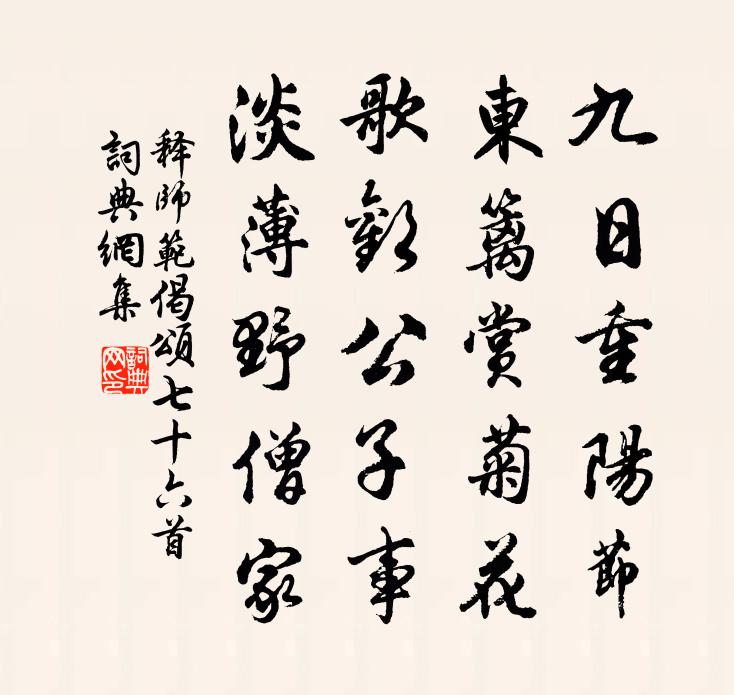 九日重陽節
東籬賞菊花
歌歡公子事
淡薄野僧家
释師範偈頌七十六首
詞典網集
詞典網印